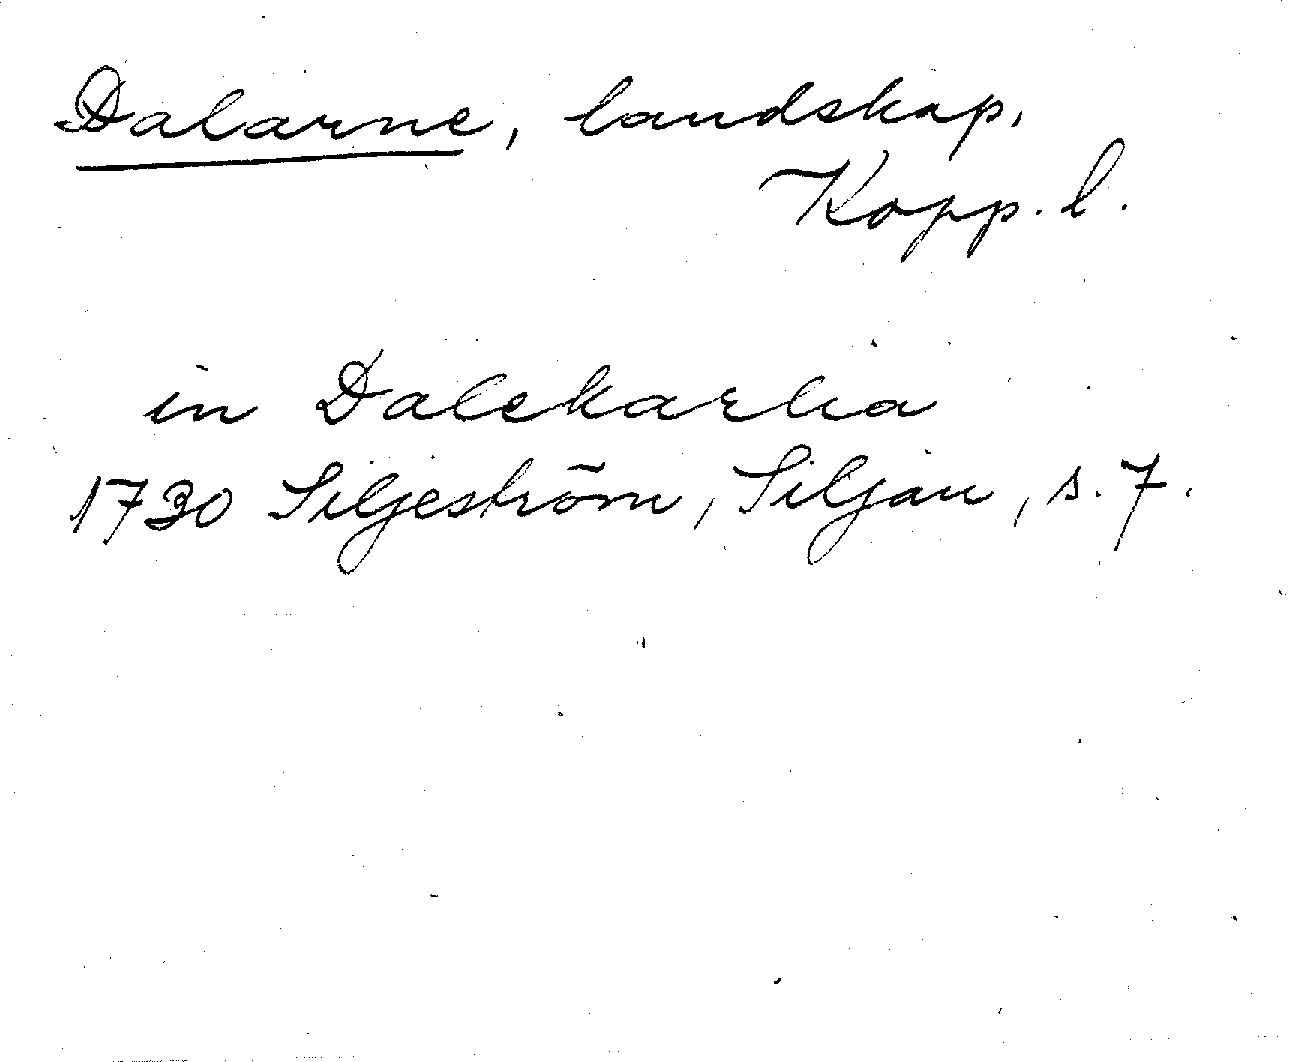 Dalarne, landskap,
Kopp. l.
in Dalekarlia
1730 Siljeström, Siljan, s. 7.